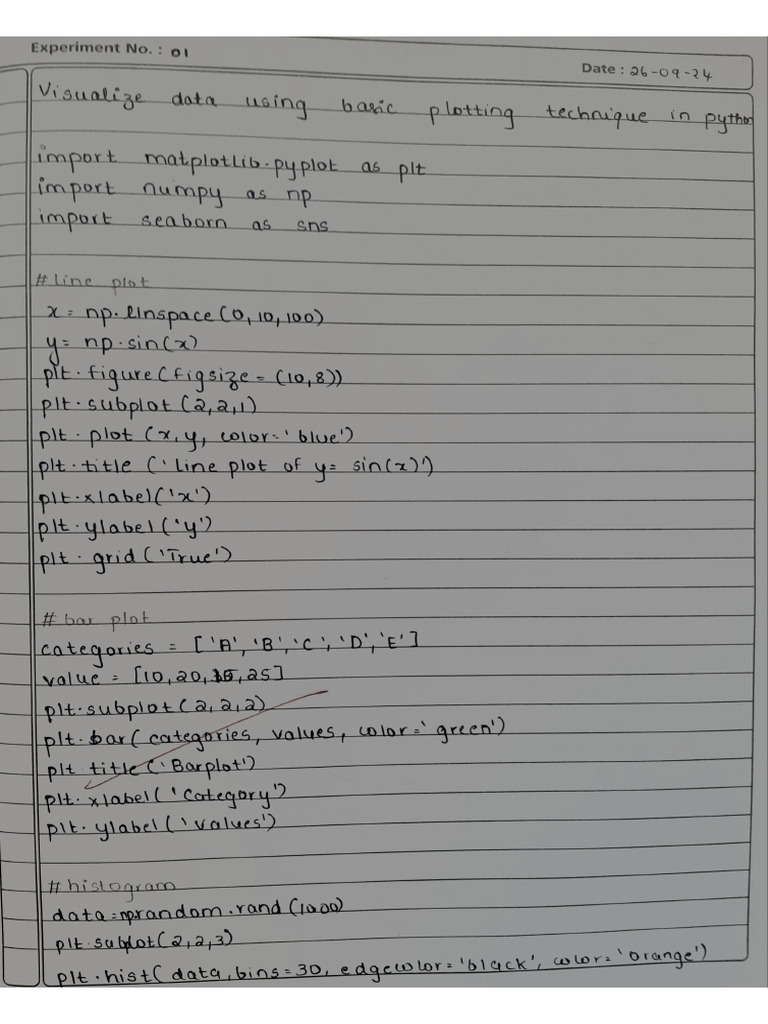 Experiment No. : 01
Date : 26-09-24
Visualize data using basic plotting technique in python
import matplotlib.pyplot as plt
import numpy as np
import seaborn as sns
# line plot
x = np.linspace(0,10,100)
y = np.sin(x)
plt.figure(figsize = (10,8))
plt.subplot(2,2,1)
plt.plot (x,y, color='blue')
plt.title ('line plot of y= sin(x)')
plt.xlabel('x')
plt.ylabel('y')
plt.grid('True')
# bar plot
categories = ['A','B','C','D','E']
value = [10,20,15,25]
plt.subplot(2,2,2)
plt.bar(categories, values, color='green')
plt.title('Barplot')
plt.xlabel('Category')
plt.ylabel('values')
# histogram
data=np.random.rand(1000)
plt.subplot(2,2,3)
plt.hist(data,bins=30, edgecolor='black', color='orange')